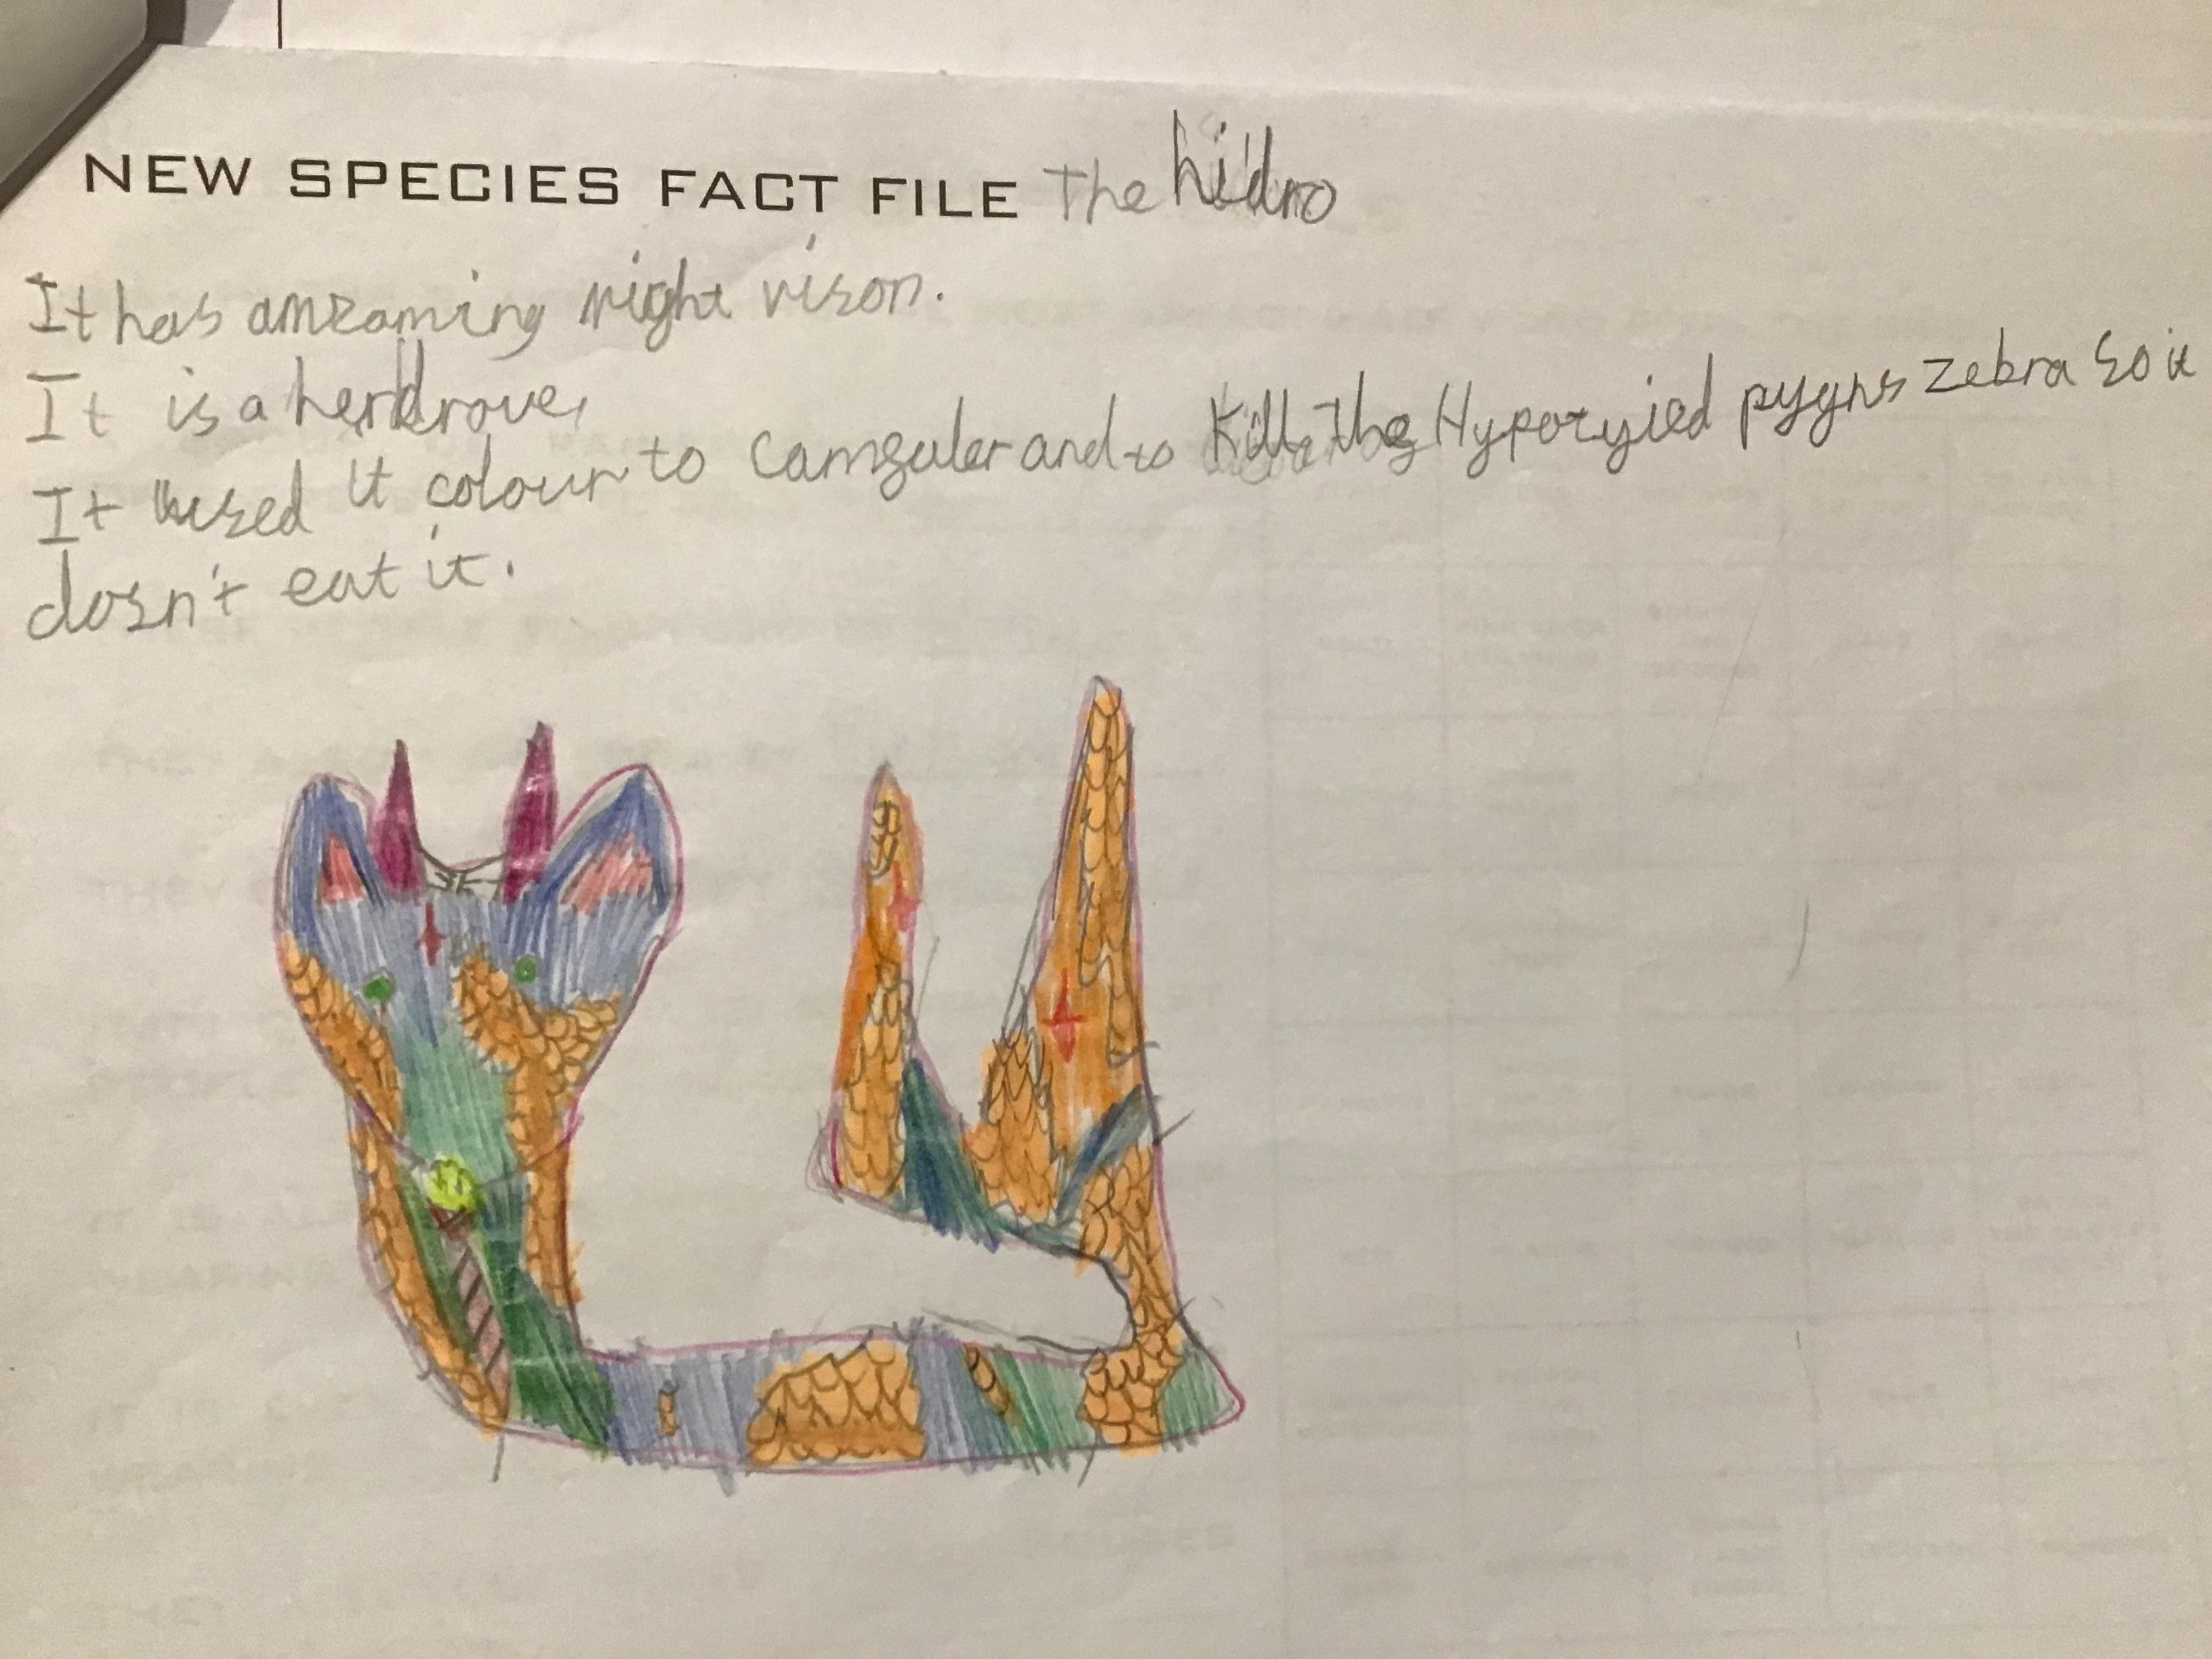 NEW SPECIES FACT FILE The hidro
It has amzaming night vison.
It is a herdrove,
It used it colour to camguler and to kill the Hyporyied pygns zebra so it
dosn't eat it.